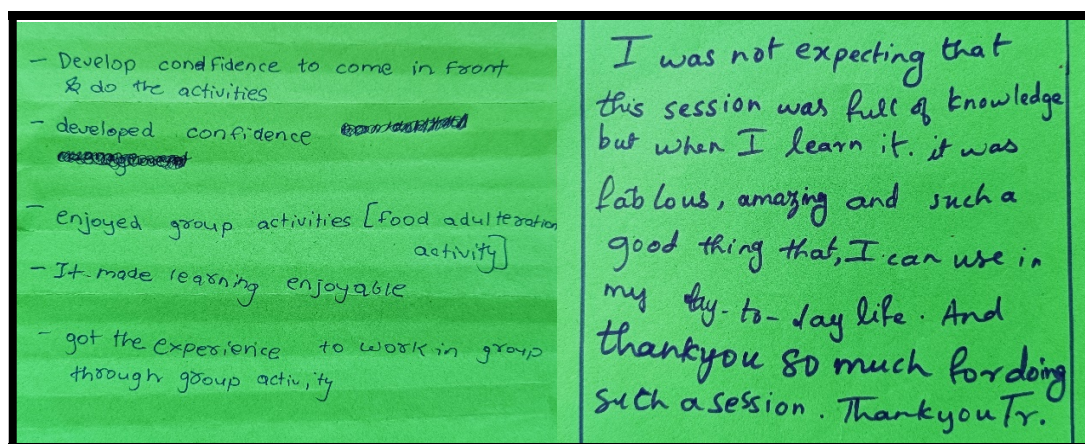 - Develop condfidence to come in front
& do the activities
- developed confidence
- enjoyed group activities [food adulteration
activity]
- It made learning enjoyable
- got the experience to work in group
through group activity
I was not expecting that
this session was full of knowledge
but when I learn it. it was
fablous, amazing and such a
good thing that, I can use in
my day-to-day life. And
thankyou so much for doing
such a session. Thankyou Tr.